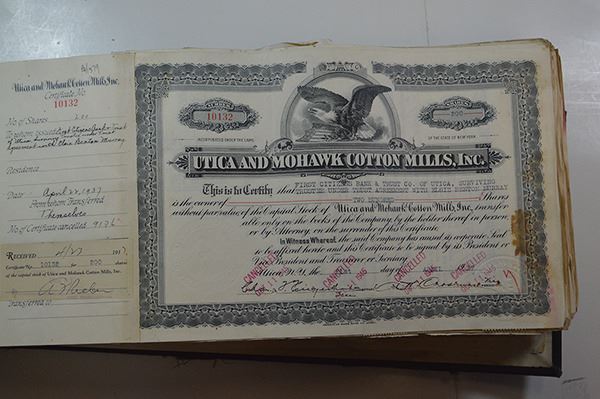 Utica and Mohawk Cotton Mills, Inc.
Certificate No.
10132
No. of Shares 200
To whom issued First Citizens Bank & Trust
of Utica
Agreement with Clara Benton Murray
Residence
Date April 22, 1937
From whom Transferred
Themselves
No. of Certificate cancelled 9136
RECEIVED 4/27 1937
Certificate No. 10132 for 200 shares
of the capital stock of Utica and Mohawk Cotton Mills, Inc.
Transferred to
NUMBER
10132
SHARES
200
INCORPORATED UNDER THE LAWS
OF THE STATE OF NEW YORK
UTICA AND MOHAWK COTTON MILLS, INC.
This is to Certify that FIRST CITIZENS BANK & TRUST CO. OF UTICA, SURVIVING
TRUSTEE UNDER TRUST AGREEMENT WITH CLARA BENTON MURRAY
is the owner of TWO HUNDRED Shares
without par value of the Capital Stock of Utica and Mohawk Cotton Mills, Inc., transfer
able only on the books of the Company by the holder thereof in person
or by Attorney, on the surrender of this Certificate.
In Witness Whereof, the said Company has caused its corporate Seal
to be affixed hereto and this Certificate to be signed by its President or
Vice President and Treasurer or Secretary.
Utica, N.Y. day of
CANCELLED
CANCELLED
CANCELLED
CANCELLED